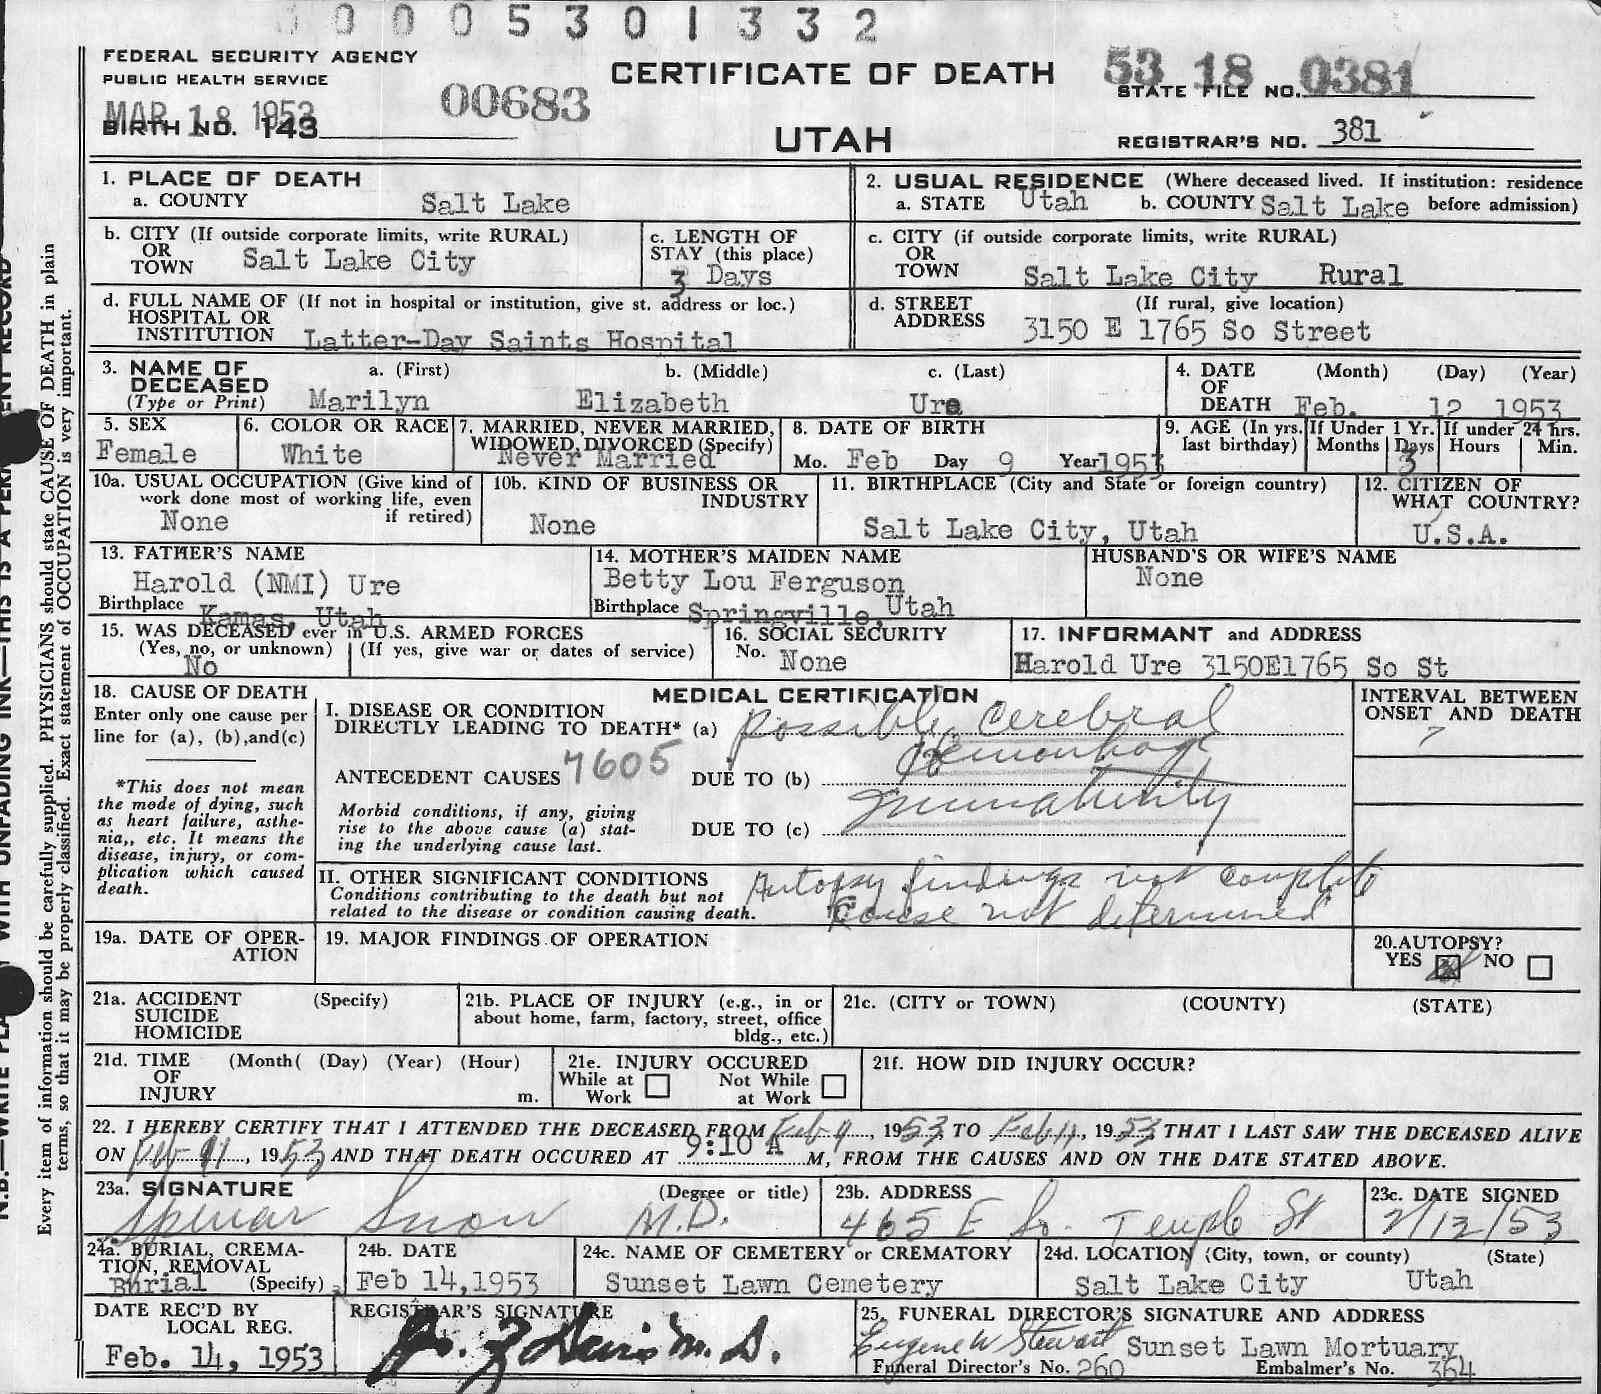 0005301332
FEDERAL SECURITY AGENCY
PUBLIC HEALTH SERVICE
MAR 18 1953
BIRTH NO. 143
00683
CERTIFICATE OF DEATH
UTAH
53 18 0381
STATE FILE NO.
REGISTRAR'S NO. 381
1. PLACE OF DEATH
a. COUNTY Salt Lake
2. USUAL RESIDENCE (Where deceased lived. If institution: residence before admission)
a. STATE Utah b. COUNTY Salt Lake
b. CITY (If outside corporate limits, write RURAL)
OR
TOWN Salt Lake City
c. LENGTH OF
STAY (this place)
3 Days
c. CITY (if outside corporate limits, write RURAL)
OR
TOWN Salt Lake City Rural
d. FULL NAME OF (If not in hospital or institution, give st. address or loc.)
HOSPITAL OR
INSTITUTION Latter-Day Saints Hospital
d. STREET (If rural, give location)
ADDRESS 3150 E 1765 So Street
3. NAME OF a. (First) b. (Middle) c. (Last)
DECEASED
(Type or Print) Marilyn Elizabeth Ure
4. DATE (Month) (Day) (Year)
OF
DEATH Feb. 12 1953
5. SEX
Female
6. COLOR OR RACE
White
7. MARRIED, NEVER MARRIED,
WIDOWED, DIVORCED (Specify)
Never Married
8. DATE OF BIRTH
Mo. Feb Day 9 Year 1953
9. AGE (In yrs. last birthday)
If Under 1 Yr.
Months Days
3
If under 24 hrs.
Hours Min.
10a. USUAL OCCUPATION (Give kind of
work done most of working life, even
if retired)
None
10b. KIND OF BUSINESS OR
INDUSTRY
None
11. BIRTHPLACE (City and State or foreign country)
Salt Lake City, Utah
12. CITIZEN OF
WHAT COUNTRY?
U.S.A.
13. FATHER'S NAME
Harold (NMI) Ure
Birthplace Kamas, Utah
14. MOTHER'S MAIDEN NAME
Betty Lou Ferguson
Birthplace Springville, Utah
HUSBAND'S OR WIFE'S NAME
None
15. WAS DECEASED ever in U.S. ARMED FORCES
(Yes, no, or unknown) (If yes, give war or dates of service)
No
16. SOCIAL SECURITY
No. None
17. INFORMANT and ADDRESS
Harold Ure 3150E1765 So St
18. CAUSE OF DEATH
Enter only one cause per
line for (a), (b), and (c)
*This does not mean
the mode of dying, such
as heart failure, asthe-
nia,, etc. It means the
disease, injury, or com-
plication which caused
death.
MEDICAL CERTIFICATION
I. DISEASE OR CONDITION
DIRECTLY LEADING TO DEATH* (a) possible cerebral
Hemorrhage
ANTECEDENT CAUSES 7605 DUE TO (b)
Immaturity
Morbid conditions, if any, giving
rise to the above cause (a) stat-
ing the underlying cause last.
DUE TO (c)
INTERVAL BETWEEN
ONSET AND DEATH
?
II. OTHER SIGNIFICANT CONDITIONS
Conditions contributing to the death but not
related to the disease or condition causing death.
Autopsy findings not complete
Cause not determined
19a. DATE OF OPER-
ATION
19. MAJOR FINDINGS OF OPERATION
20. AUTOPSY?
YES NO
21a. ACCIDENT (Specify)
SUICIDE
HOMICIDE
21b. PLACE OF INJURY (e.g., in or
about home, farm, factory, street, office
bldg., etc.)
21c. (CITY or TOWN) (COUNTY) (STATE)
21d. TIME (Month( (Day) (Year) (Hour)
OF
INJURY m.
21e. INJURY OCCURED
While at Work Not While at Work
21f. HOW DID INJURY OCCUR?
22. I HEREBY CERTIFY THAT I ATTENDED THE DECEASED FROM Feb 9, 1953, TO Feb 11, 1953, THAT I LAST SAW THE DECEASED ALIVE
ON Feb 11, 1953 AND THAT DEATH OCCURED AT 9:10 A M, FROM THE CAUSES AND ON THE DATE STATED ABOVE.
23a. SIGNATURE (Degree or title)
Spencer Snow M.D.
23b. ADDRESS
465 E So. Temple St
23c. DATE SIGNED
2/12/53
24a. BURIAL, CREMA-
TION, REMOVAL
Burial (Specify)
24b. DATE
Feb 14,1953
24c. NAME OF CEMETERY or CREMATORY
Sunset Lawn Cemetery
24d. LOCATION (City, town, or county) (State)
Salt Lake City Utah
DATE REC'D BY
LOCAL REG.
Feb. 14, 1953
REGISTRAR'S SIGNATURE
M.D.
25. FUNERAL DIRECTOR'S SIGNATURE AND ADDRESS
Eugene W Stewart Sunset Lawn Mortuary
Funeral Director's No. 260 Embalmer's No. 364
Every item of information should be carefully supplied. PHYSICIANS should state CAUSE OF DEATH in plain
terms, so that it may be properly classified. Exact statement of OCCUPATION is very important.
WITH UNFADING INK—THIS IS A